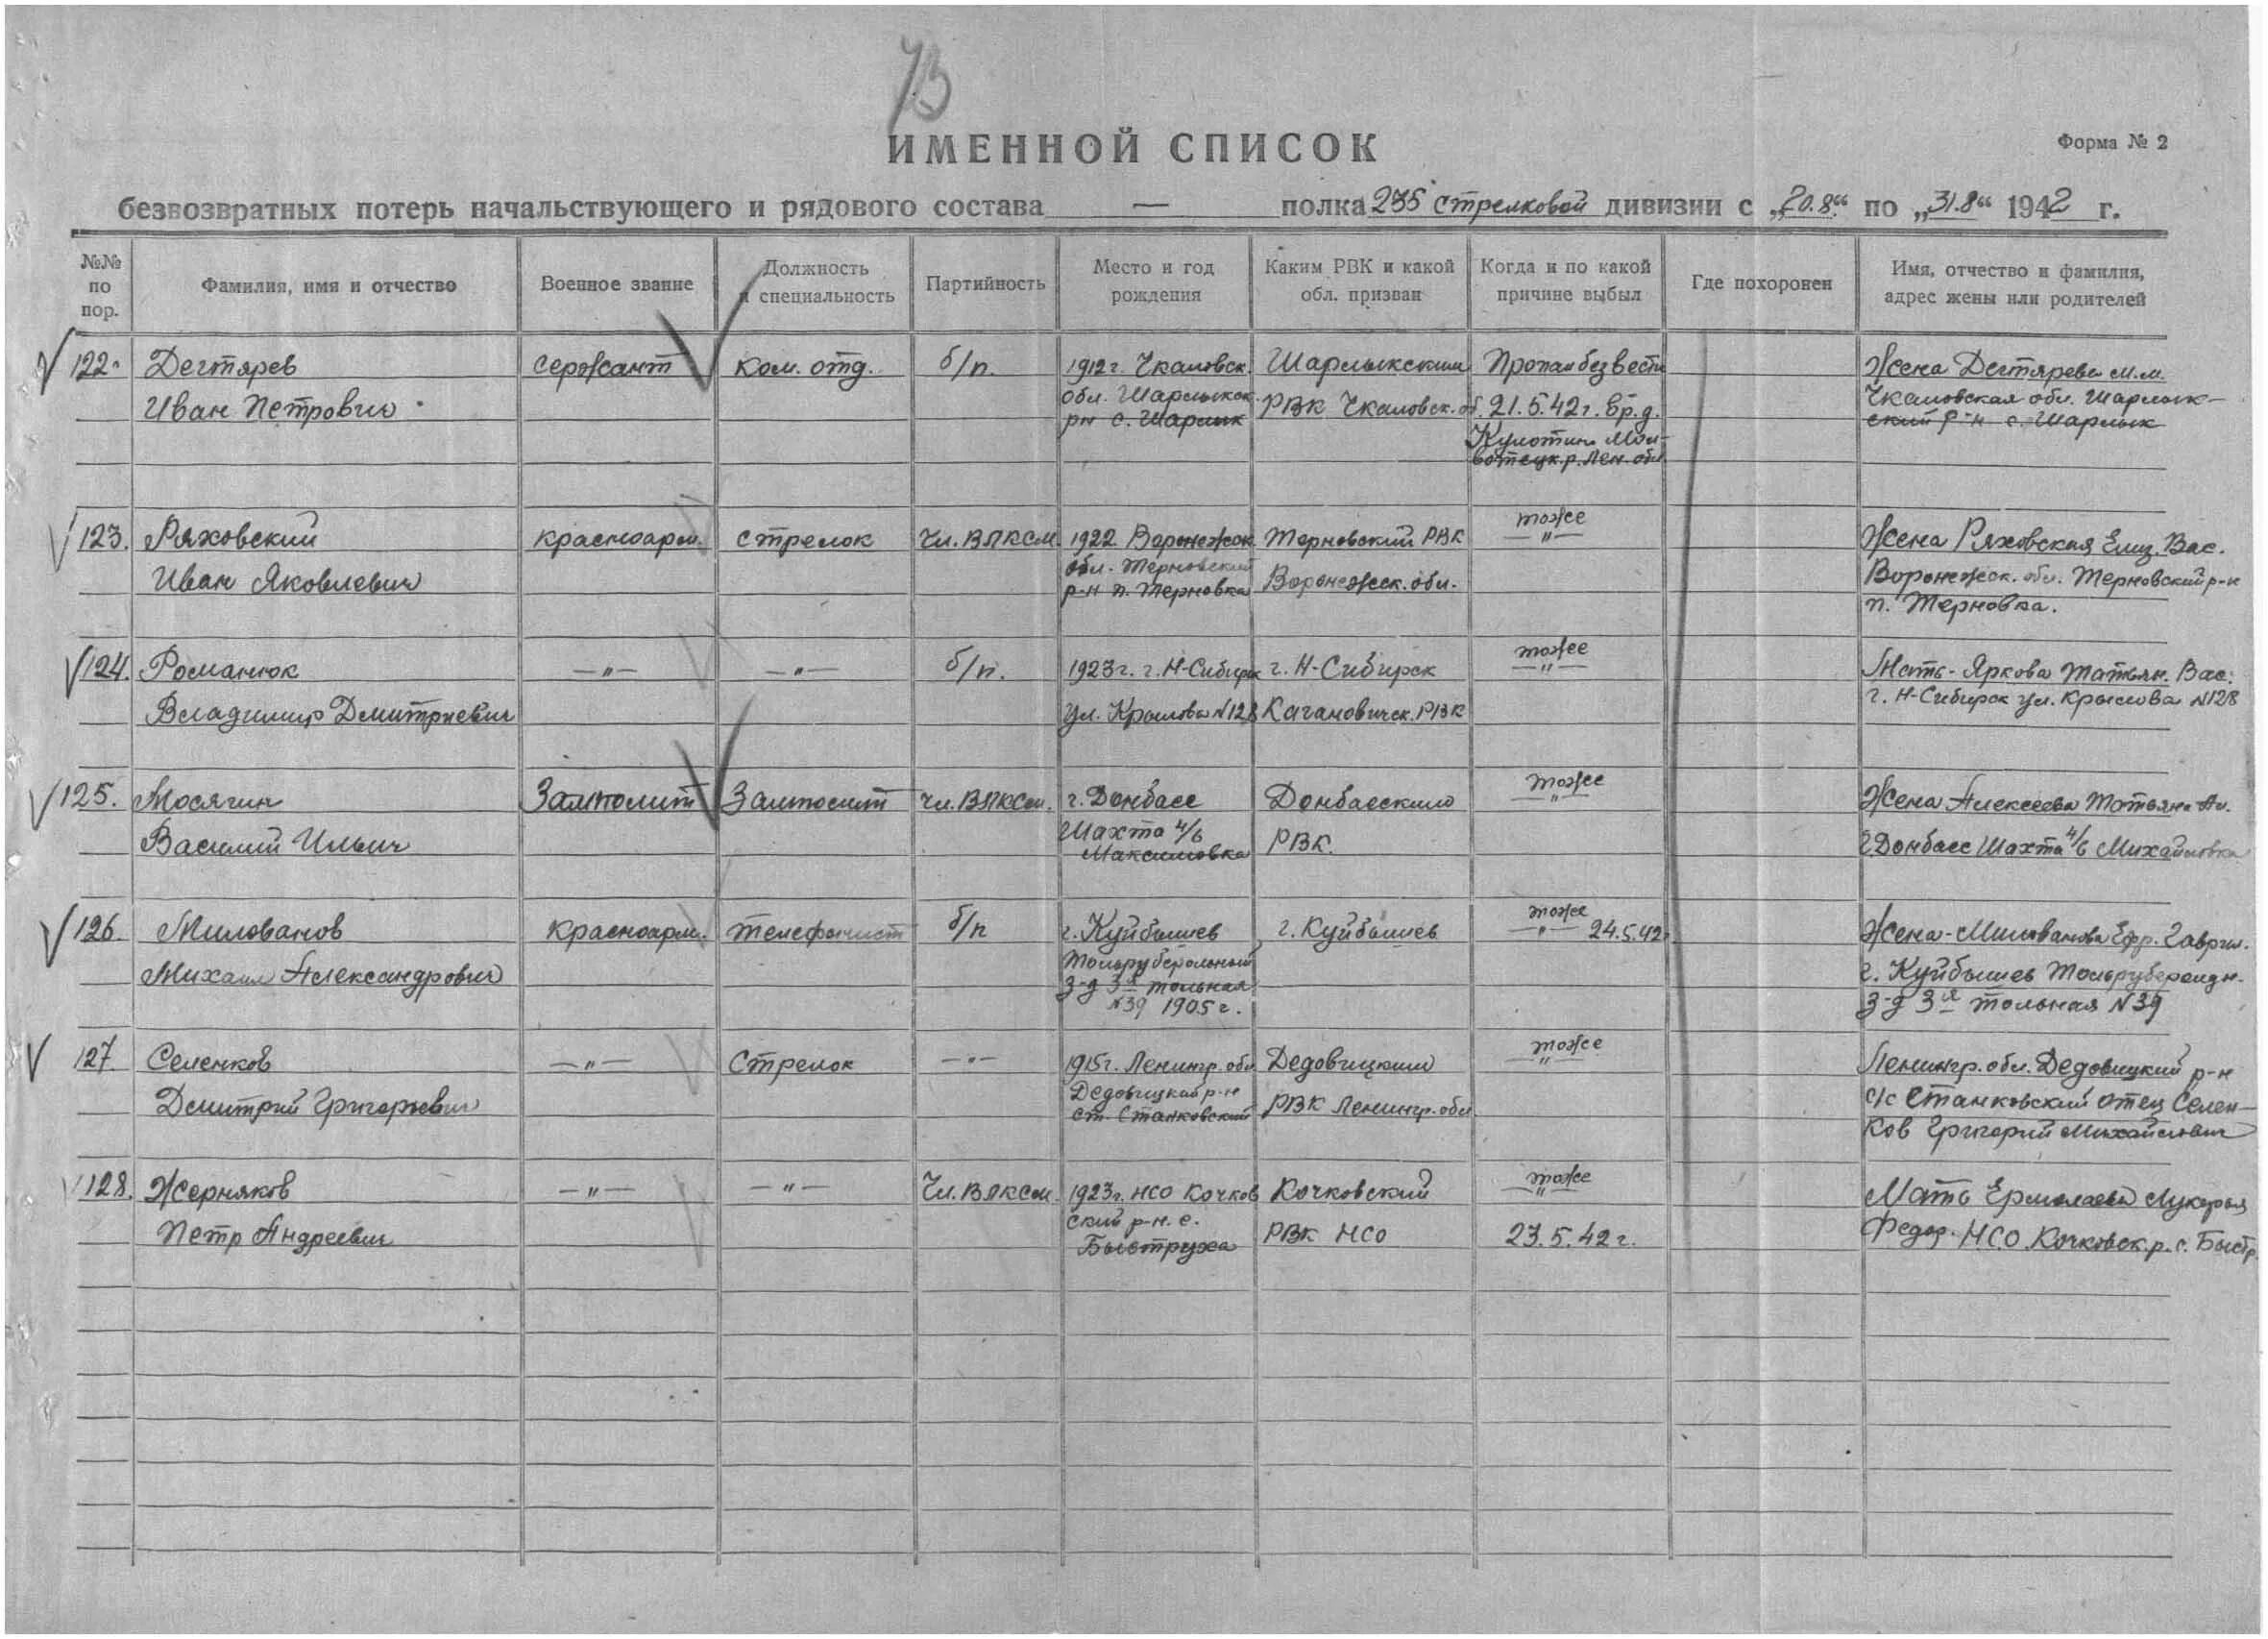 73
ИМЕННОЙ СПИСОК
Форма № 2
безвозвратных потерь начальствующего и рядового состава — полка 235 стрелковой дивизии с „20.8“ по „31.8“ 1942 г.
№№ по пор.
Фамилия, имя и отчество
Военное звание
Должность и специальность
Партийность
Место и год рождения
Каким РВК и какой обл. призван
Когда и по какой причине выбыл
Где похоронен
Имя, отчество и фамилия, адрес жены или родителей
122. Дегтярев сержант Ком. отд. б/п. 1912 г. Чкаловск. Шарлыкским Пропал без вести Жена Дегтярева М.М.
Иван Петрович обл. Шарлыкск. РВК Чкаловск. об. 21.5.42 г. в р.д. Чкаловская обл. Шарлык-
рн с. Шарлык ский р-н с. Шарлык
Кулотино Мол-
вотецк. р. Лен. обл.
123. Ряховский красноарм. стрелок Чл. ВЛКСМ 1922 Воронежск. Терновский РВК тоже Жена Ряховская Елиз. Вас.
—"—
Иван Яковлевич обл. Терновский Воронежск. обл. Воронежск. обл. Терновский р-н
р-н п. Терновка п. Терновка.
124. Романюк —"— —"— б/п. 1923 г. г. Н-Сибирск г. Н-Сибирск тоже Мать - Яркова Татьян. Вас.
—"—
Владимир Дмитриевич ул. Крылова №128 Кагановичск. РВК г. Н-Сибирск ул. Крылова №128
125. Мосягин Замполит Замполит чл. ВЛКСМ. г. Донбасс Донбасским тоже Жена Алексеева Татьяна Ал.
—"—
Василий Ильич Шахта 4/6 РВК. г. Донбасс Шахта 4/6 Михайловка
Максимовка
126. Милованов красноарм. телефонист б/п г. Куйбышев г. Куйбышев тоже Жена - Милованова Ефр. Гаврил.
—"— 24.5.42
Михаил Александрович г. Куйбышев Тольруберoидн.
з-д 3я тольная з-д 3я тольная №39
№39 1905 г.
127. Селенков —"— Стрелок —"— 1915 г. Ленингр. обл Дедовицким тоже Ленингр. обл. Дедовицкий р-н
—"—
Дмитрий Григорьевич Дедовицкий р-н РВК Ленингр. обл с/с Станковский отец Селен-
ст. Станковский ков Григорий Михайлович
128. Жерняков —"— —"— Чл. ВЛКСМ. 1923 г. НСО Кочков Кочковский тоже Мать Ермолаева Лукерья
—"—
Петр Андреевич ский р-н. с. РВК НСО 23.5.42 г. Федор. НСО Кочковск. р. с. Быстр.
Быструха